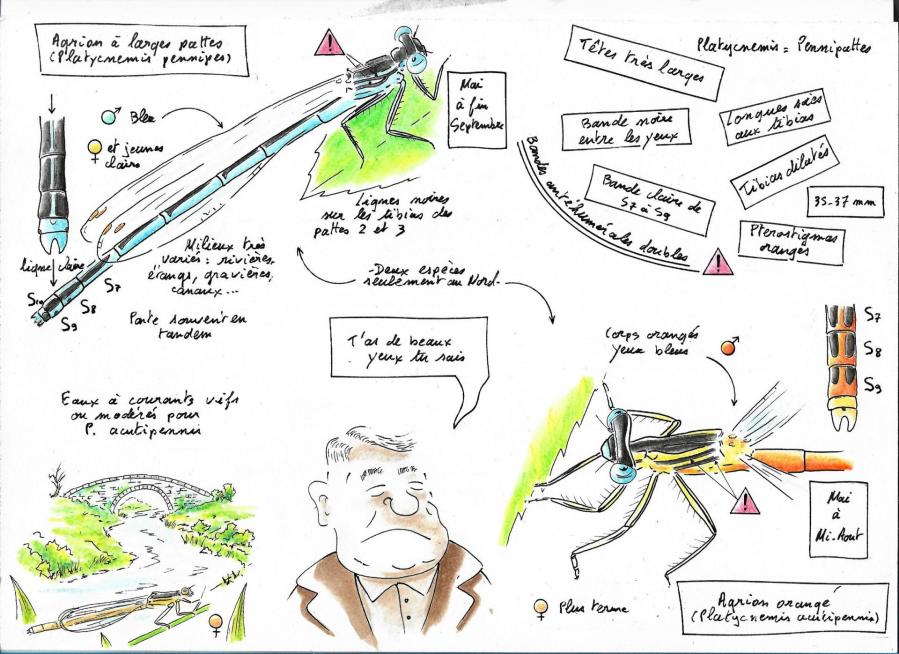 Agrion à larges pattes
(Platycnemis pennipes)
♂ Bleu
♀ et jeunes
clairs
ligne claire
S10
S9
S8
S7
Mai
à fin
Septembre
Lignes noires
sur les tibias des
pattes 2 et 3
Milieux très
variés : rivières,
étangs, gravières,
canaux...
Ponte souvent en
tandem
Platycnemis = Pennipattes
Têtes très larges
Bande noire
entre les yeux
Longues soies
aux tibias
Bande claire de
S7 à S9
Tibias dilatés
35-37 mm
Ptérostigmas
orangés
Bandes antéhumérales doubles
-Deux espèces
seulement au Nord-
T'as de beaux
yeux tu sais
Eaux à courants vifs
ou modérés pour
P. acutipennis
♀
Corps orangés
yeux bleus
♂
S7
S8
S9
Mai
à
Mi-Aout
♀ Plus terne
Agrion orangé
(Platycnemis acutipennis)